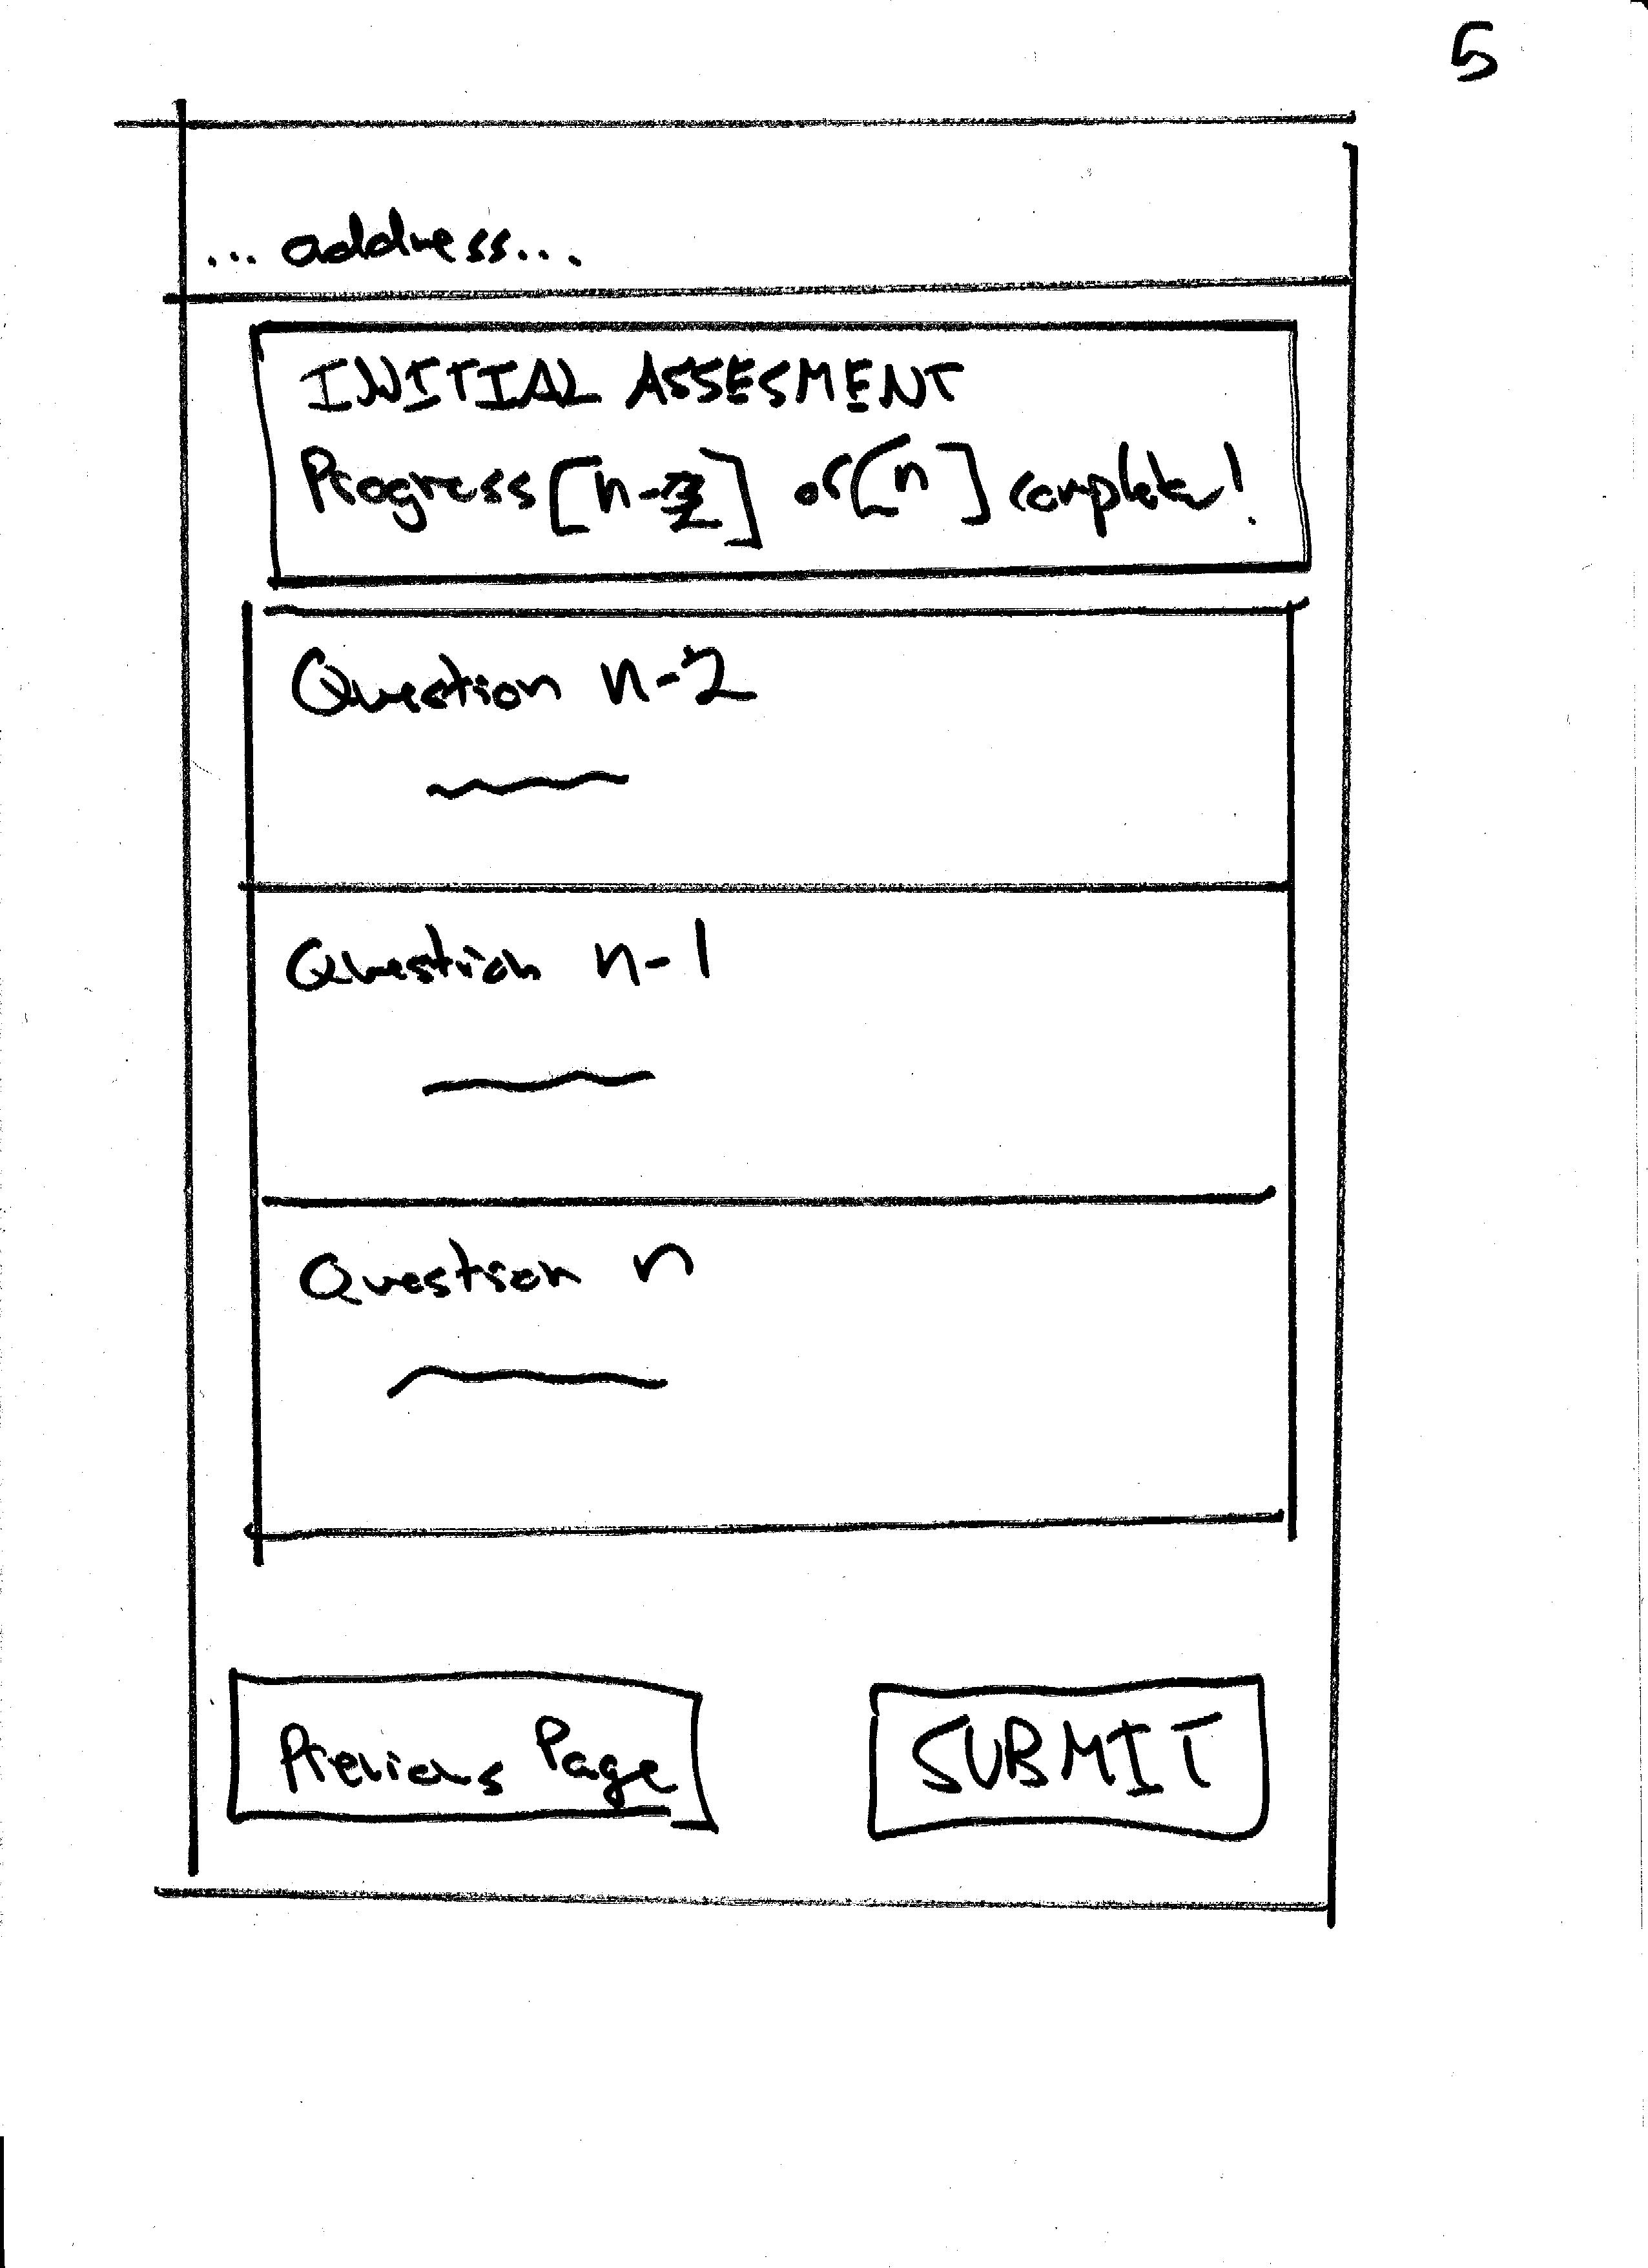 5
... address...
INITIAL ASSESMENT
Progress [n-2] of [n] complete!
Question n-2
Question n-1
Question n
Previous Page
SUBMIT